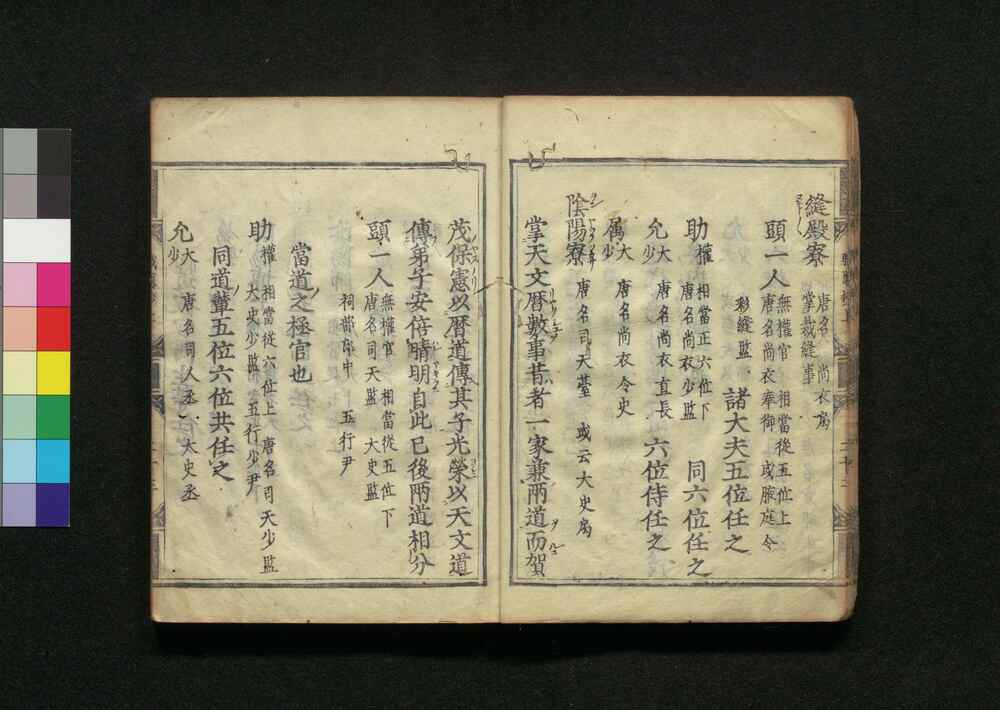 縫殿寮 唐名 尚衣局
掌裁縫事
頭一人 無權官 相當從五位上
唐名尚衣奉御 或腋庭令
彩縫監 諸大夫五位任之
助 權 相當正六位下
唐名尚衣少監 同六位任之
允 大少 唐名尚衣直長 六位侍任之
属 大少 唐名尚衣令史
陰陽寮 唐名司天臺 或云大史局
掌天文暦數事昔者一家兼兩道而賀
茂保憲以暦道傳其子光榮以天文道
傳弟子安倍晴明自此已後兩道相分
頭一人 無權官 相當從五位下
唐名司天監 大史監
祠部郎中 五行尹
當道之極官也
助 權 相當從六位上 唐名司天少監
大史少監 五行少尹
同道輩五位六位共任之
允 大少 唐名司人丞 大史丞